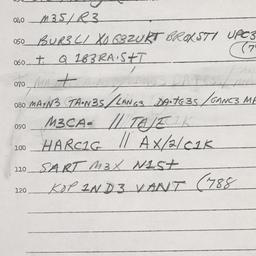 040 M35/R3
050 BUR3L1 XO G3ZURT BROXST1 UPC3
(7
060 + Q 183RA·S+T
070 +
080 MA·N3 TA·N35/LANG3 DA·TG35/GANC3 M
090 M3CA- // TAJE
100 HARC1G // AX/2/C1K
110 SART M3X N1S+
120 KOP 1ND3 VANT (788